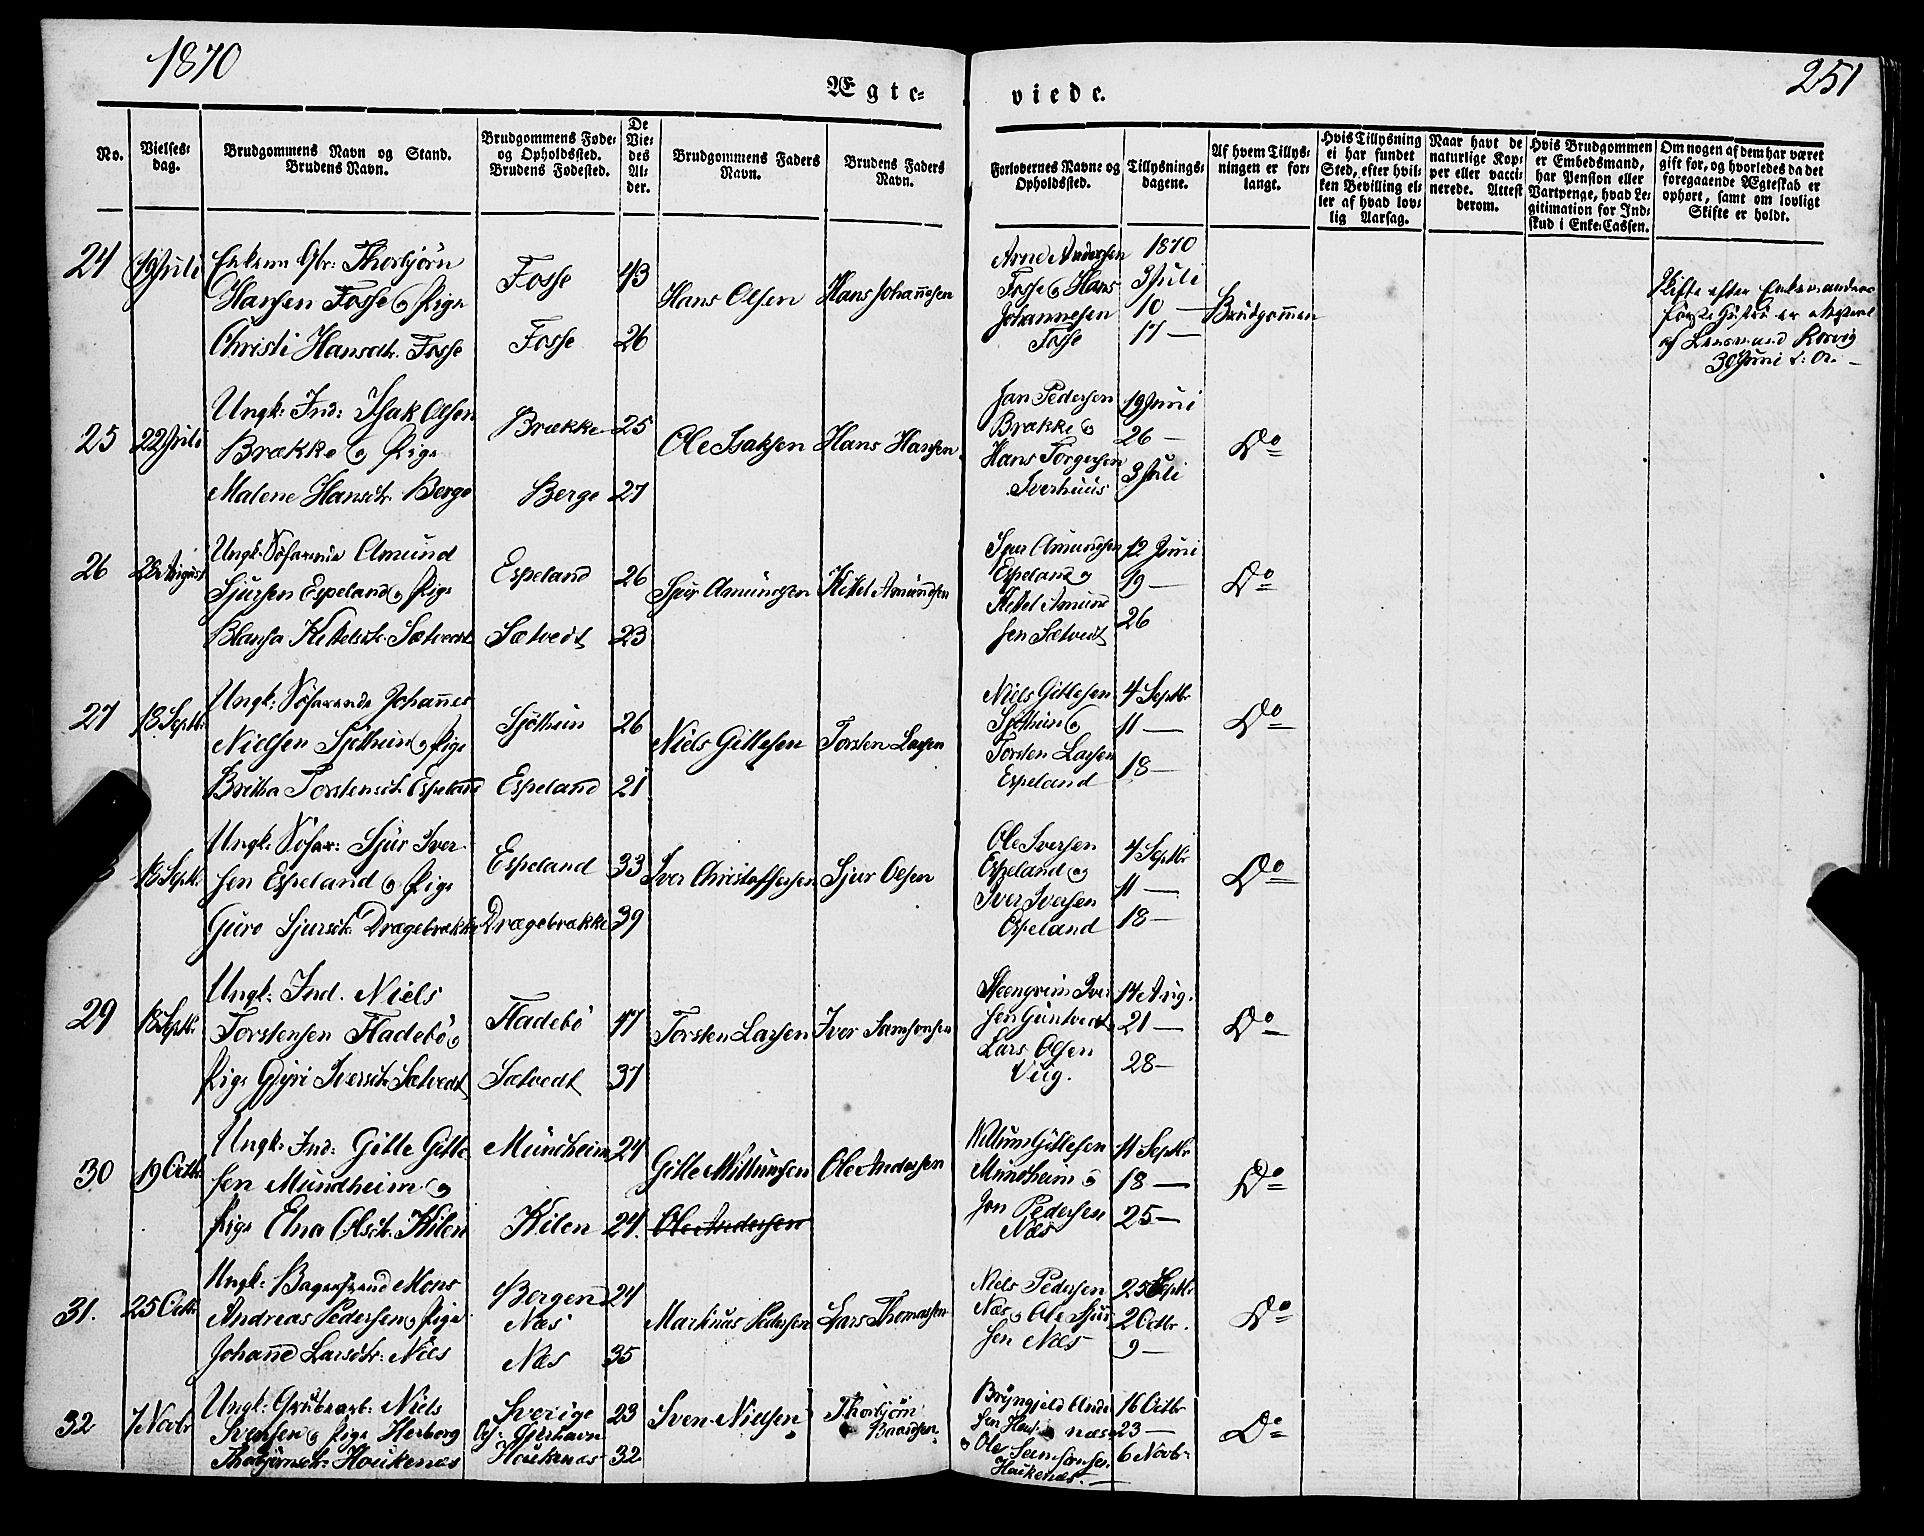 1870
251
Ægte-
viede.
No.
Vielses-
dag.
Brudgommens Navn og Stand.
Brudens Navn.
Brudgommens Føde-
og Opholdssted.
Brudens Fødested.
De
Vie-
des
Al-
der.
Brudgommens Faders
Navn.
Brudens Faders
Navn.
Forlovernes Navne og
Opholdssted.
Tillysnings-
dagene.
Af hvem Tillys-
ningen er for-
langt.
Hvis Tillysning
ei har fundet
Sted, efter hvil-
ken Bevilling el-
ler af hvad lov-
lig Aarsag.
Naar havt de
naturlige Kop-
per eller vacci-
nerede. Attest
derom.
Hvis Brudgommen
er Embedsmand,
har Pension eller
Vartpenge, hvad Le-
gitimation for Ind-
skud i Enke-Cassen.
Om nogen af dem har været
gift før, og hvorledes da det
foregaaende Ægteskab er
ophørt, samt om lovligt
Skifte er holdt.
24
19 Juli
Enkem Gbr: Thorbjørn
Hansen Fosse og Pige
Christi Hansdtr. Fosse
Fosse
Fosse
43
26
Hans Olsen
Hans Johannesen
Arne Andersen
Fosse og Hans
Johannesen
Fosse
1870
3 Juli
10 —
17 —
Brudgommen
Skifte efter Enkemandens
første Hustru er afholdt
af Lensmand
30 Juni d: A. —
25
22 Juli
Ungk: Ind: Isak Olsen
Brække og Pige
Malene Hansdtr. Berge
Brække
Berge
25
27
Ole Isaksen
Hans Hansen
Jan Pedersen
Brække og
Hans Torgersen
Iverhuus
19 Juni
26 —
3 Juli
Do
26
28 August
Ungk: Søfarende Amund
Sjursen Espeland og Pige
Kittelsdtr. Sætvedt
Espeland
Sætvedt
26
23
Sjur Amundsen
Kittel Amundsen
Sjur Amundsen
Espeland og
Kittel Amund
sen Sætvedt
12 Juni
19 —
26
Do
27
18 Septbr.
Ungk: Søfarende Johannes
Nielsen Sjøthun og Pige
Britha Torstensdtr. Espeland
Sjøthun
Espeland
26
21
Niels Gitlesen
Torsten Larsen
Niels Gitlesen
Sjøthun og
Torsten Larsen
Espeland
4 Septbr
11 —
18 —
Do
18 Septbr.
Ungk: Søfar: Sjur Iver
sen Espeland og Pige
Guro Sjursdtr. Drægebrække
Espeland
Drægebrække
33
39
Iver Christoffersen
Sjur Olsen
Ole Iversen
Espeland og
Iver Iversen
Espeland
4 Septbr
11 —
18 —
Do
29
18 Septbr.
Ungk: Ind. Niels
Torstensen Fladebø og
Pige Gyri Iversdtr. Sætvedt
Fladebø
Sætvedt
47
37
Torsten Larsen
Iver Samsonsen
Steengrim Iver
sen Guntvedt
Lars Olsen
Viig.
14 Aug.
21 —
28 —
Do
30
19 Octbr.
Ungk: Ind: Gitle Gitle
sen Mundheim og
Pige Elna Olsdtr. Kilen
Mundheim
Kilen
24
24.
Gitle Villumsen
Ole Andersen
Ole Andersen
Villum Gitlesen
Mundheim og
Jon Pedersen
Næs
11 Septbr
18 —
25 —
Do
31.
25 Octbr
Ungk: Bagersvend Mons
Andreas Pedersen og Pige
Johanne Larsdtr: Næs
Bergen
Næs
Næs
24
35
Markus Pedersen
Lars Thomassen
Niels Pedersen
Næs og Ole Sjur
sen Næs
25 Septbr
2 Octbr.
9 —
Do
32
7 Novbr
Ungk: Grubearb: Niels
Svensen og Pige Herborg
Thorbjørnsdtr: Houkenæs
Sverige
Houkenæs
23
32
Sven Nielsen
Thorbjørn
Baardsen
Bryngjeld
Ole
Samsonsen
Houkenæs. —
16 Octbr
23 —
6 Novbr.
Do